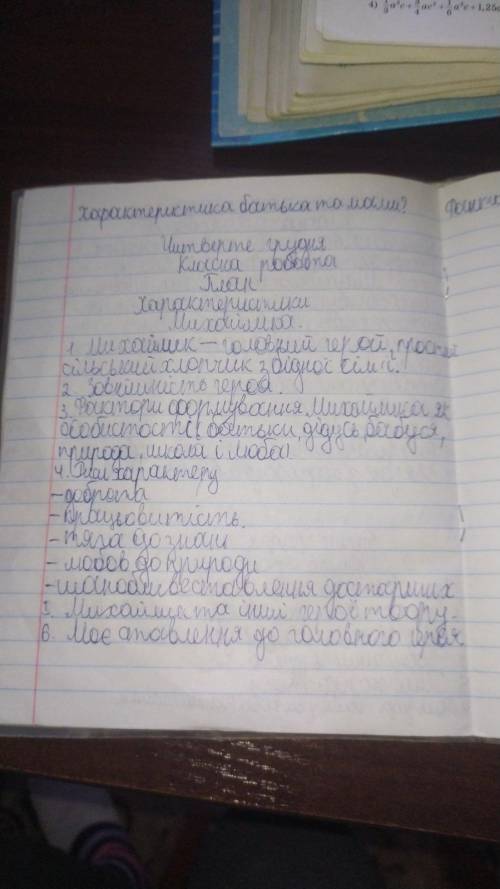 4) 1/3 a²c + 3/4 ac² + 1/6 a²c + 1,25
Характеристика батька та мами?
Читверте грудня
Класна робота
План
Характеристики
Михайлика.
1. Михайлик – головний герой, простий
сільський хлопчик з бідної сім'ї.
2. Зовнішність героя.
3. Фактори формування Михайлика як
особистості (батьки, дідусь, бабуся,
природа, школа і мова)
4. Риси характеру
-доброта
-працьовитість.
-тяга до знань
-любов до природи
-шанобливе ставлення до старших
5. Михайлик та інші герої твору.
6. Моє ставлення до головного героя